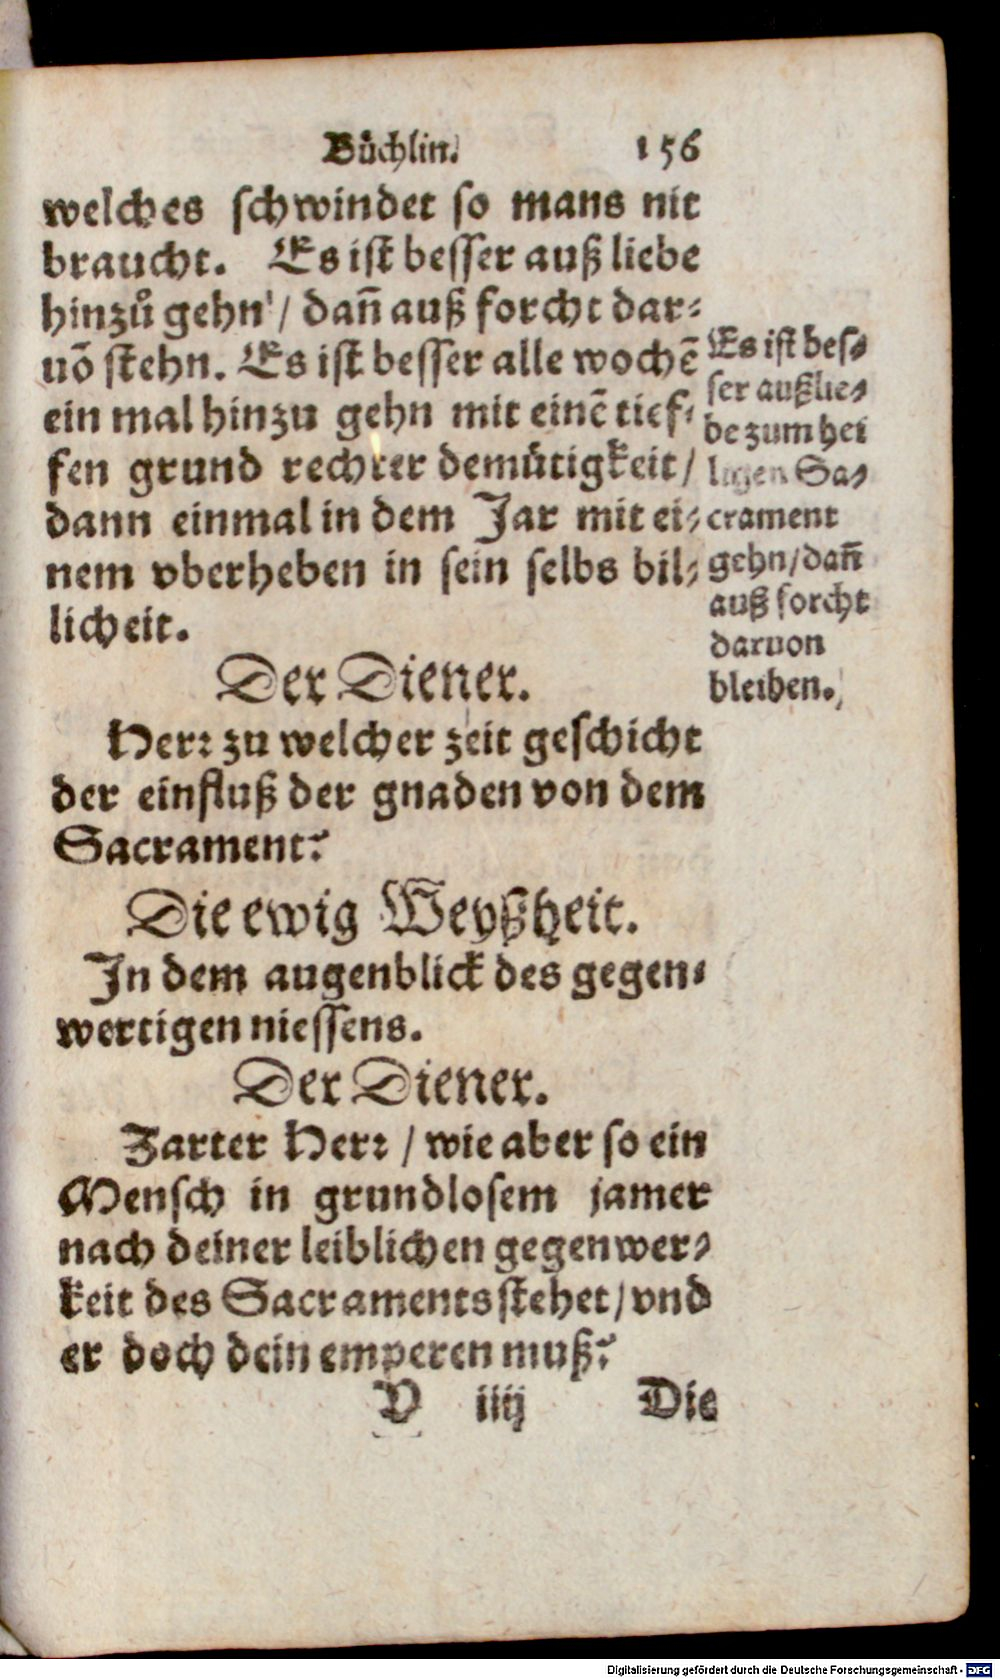 Bůchlin. 156
welches schwindet so mans nit
braucht. Es ist besser auß liebe
hinzů gehn / dañ auß forcht dar⸗
uõ stehn. Es ist besser alle wochẽ
ein mal hinzu gehn mit einẽ tief⸗
fen grund rechter demütigkeit /
dann einmal in dem Jar mit ei⸗
nem vberheben in sein selbs bil⸗
licheit.
Es ist bes⸗
ser auß lie⸗
be zum hei
ligen Sa⸗
crament
gehn / dañ
auß forcht
daruon
bleiben.
Der Diener.
Herr zu welcher zeit geschicht
der einfluß der gnaden von dem
Sacrament?
Die ewig Weyßheit.
In dem augenblick des gegen⸗
wertigen niessens.
Der Diener.
Zarter Herr / wie aber so ein
Mensch in grundlosem jamer
nach deiner leiblichen gegenwer⸗
keit des Sacraments stehet / vnd
er doch dein emperen muß?
V iiij Die
Digitalisierung gefördert durch die Deutsche Forschungsgemeinschaft - DFG